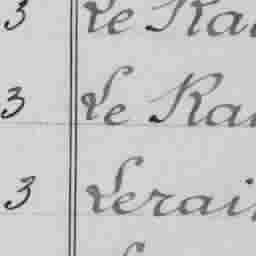 3 Le Ra
3 Le Ra
3 Lerai